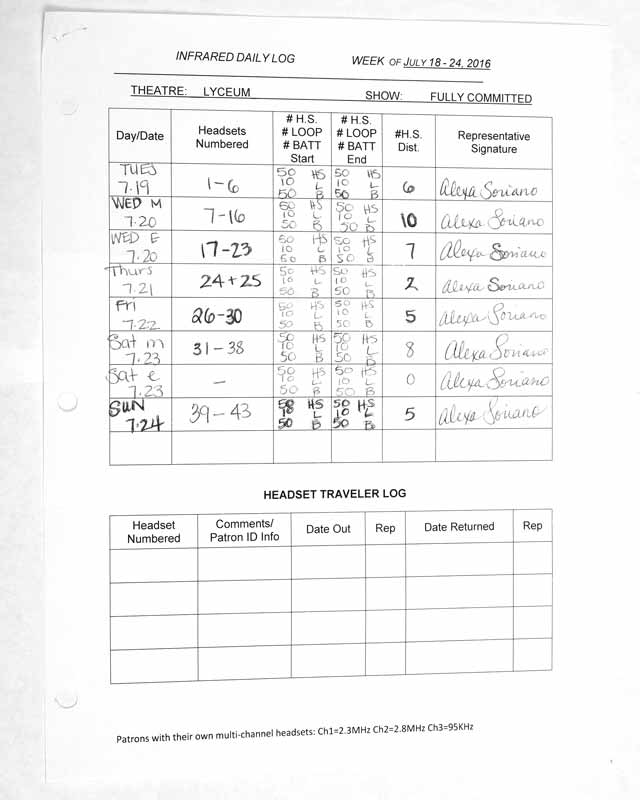 INFRARED DAILY LOG WEEK OF JULY 18 - 24, 2016
THEATRE: LYCEUM SHOW: FULLY COMMITTED
Day/Date Headsets Numbered # H.S. # LOOP # BATT Start # H.S. # LOOP # BATT End #H.S. Dist. Representative Signature
TUES 7.19 1-6 50 HS 10 L 50 B 50 HS 10 L 50 B 6 Alexa Soriano
WED M 7.20 7-16 50 HS 10 L 50 B 50 HS 10 L 50 B 10 Alexa Soriano
WED E 7.20 17-23 50 HS 10 L 50 B 50 HS 10 L 50 B 7 Alexa Soriano
Thurs 7.21 24+25 50 HS 10 L 50 B 50 HS 10 L 50 B 2 Alexa Soriano
Fri 7.22 26-30 50 HS 10 L 50 B 50 HS 10 L 50 B 5 Alexa Soriano
Sat m 7.23 31-38 50 HS 10 L 50 B 50 HS 10 L 50 B 8 Alexa Soriano
Sat e 7.23 — 50 HS 10 L 50 B 50 HS 10 L 50 B 0 Alexa Soriano
SUN 7.24 39-43 50 HS 10 L 50 B 50 HS 10 L 50 B 5 Alexa Soriano
HEADSET TRAVELER LOG
Headset Numbered Comments/ Patron ID Info Date Out Rep Date Returned Rep
Patrons with their own multi-channel headsets: Ch1=2.3MHz Ch2=2.8MHz Ch3=95KHz